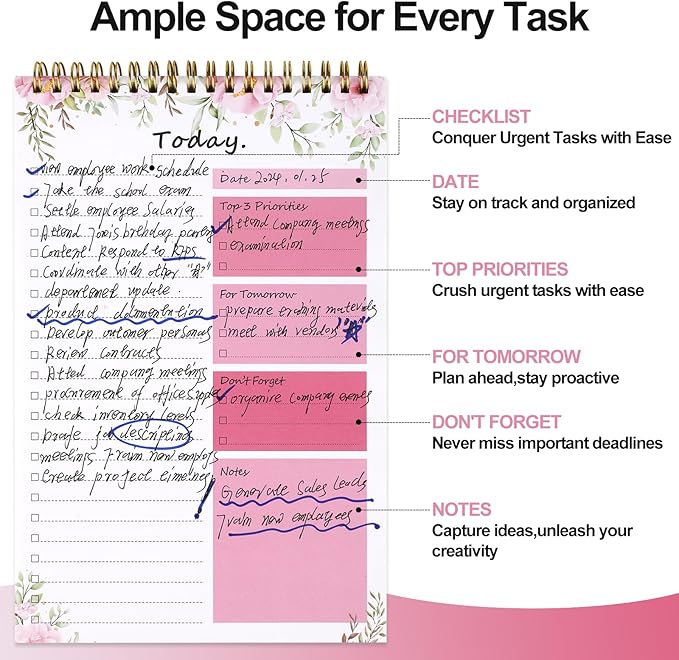 Ample Space for Every Task
Today.
new employee work schedule
Take the school exam
Settle employee Salaries
Attend Toni's birthday
Content Respond to
Coordinate with other "A7"
department update.
product documentation
Develop customer personas
Review contracts
Attend company meetings
procurement of offices
check inventory levels
descripting
meetings Train new employs
Create project timelines
Date 2024. 01. 25
Top 3 Priorities
Attend Company meetings
examination
For Tomorrow
prepare training materials
meet with vendors
Don't Forget
organise Company events
Notes
Generate Sales Leads
Train new employees
CHECKLIST
Conquer Urgent Tasks with Ease
DATE
Stay on track and organized
TOP PRIORITIES
Crush urgent tasks with ease
FOR TOMORROW
Plan ahead,stay proactive
DON'T FORGET
Never miss important deadlines
NOTES
Capture ideas,unleash your
creativity